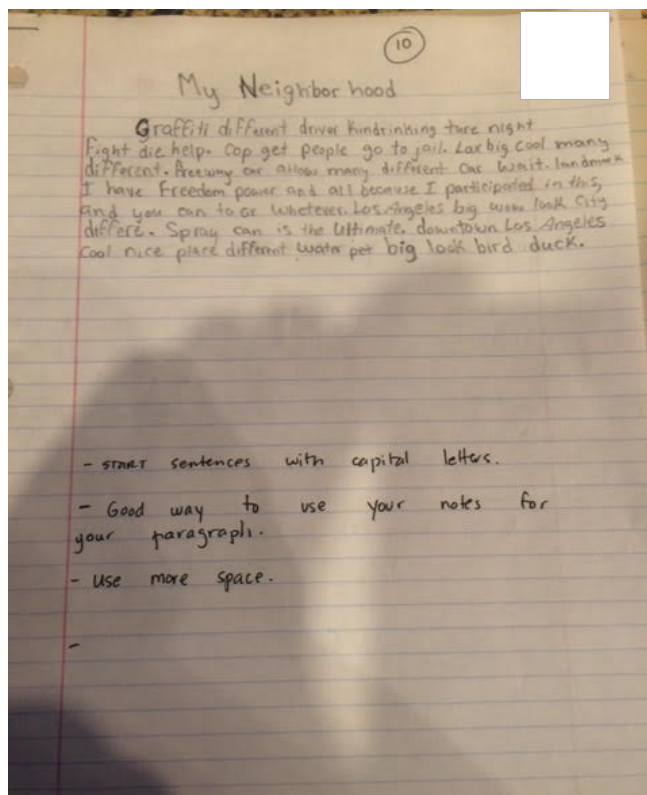 10
My Neighborhood
Graffiti different driver Kindrinking ture night
Fight die help. Cop get people go to jail. Lax big cool many
different. Freeway car allows many different car wait. landmark
I have Freedom power and all because I participated in this,
and you can to or whatever. Los Angeles big look City
differe. Spray can is the Ultimate. downtown Los Angeles
Cool nice place different water pet big look bird duck.
- START sentences with capital letters.
- Good way to use your notes for
your paragraph.
- Use more space.
-